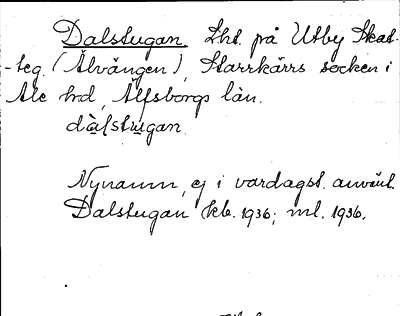 Dalstugan. Lht. på Utby Skat-
-teg. (Älvängen), Starrkärrs socken i
Ale hrd, Älfsborgs län.
dàlstugan.
Nynamn, ej i vardagsl. använt.
Dalstugan kb. 1936; ml. 1936.